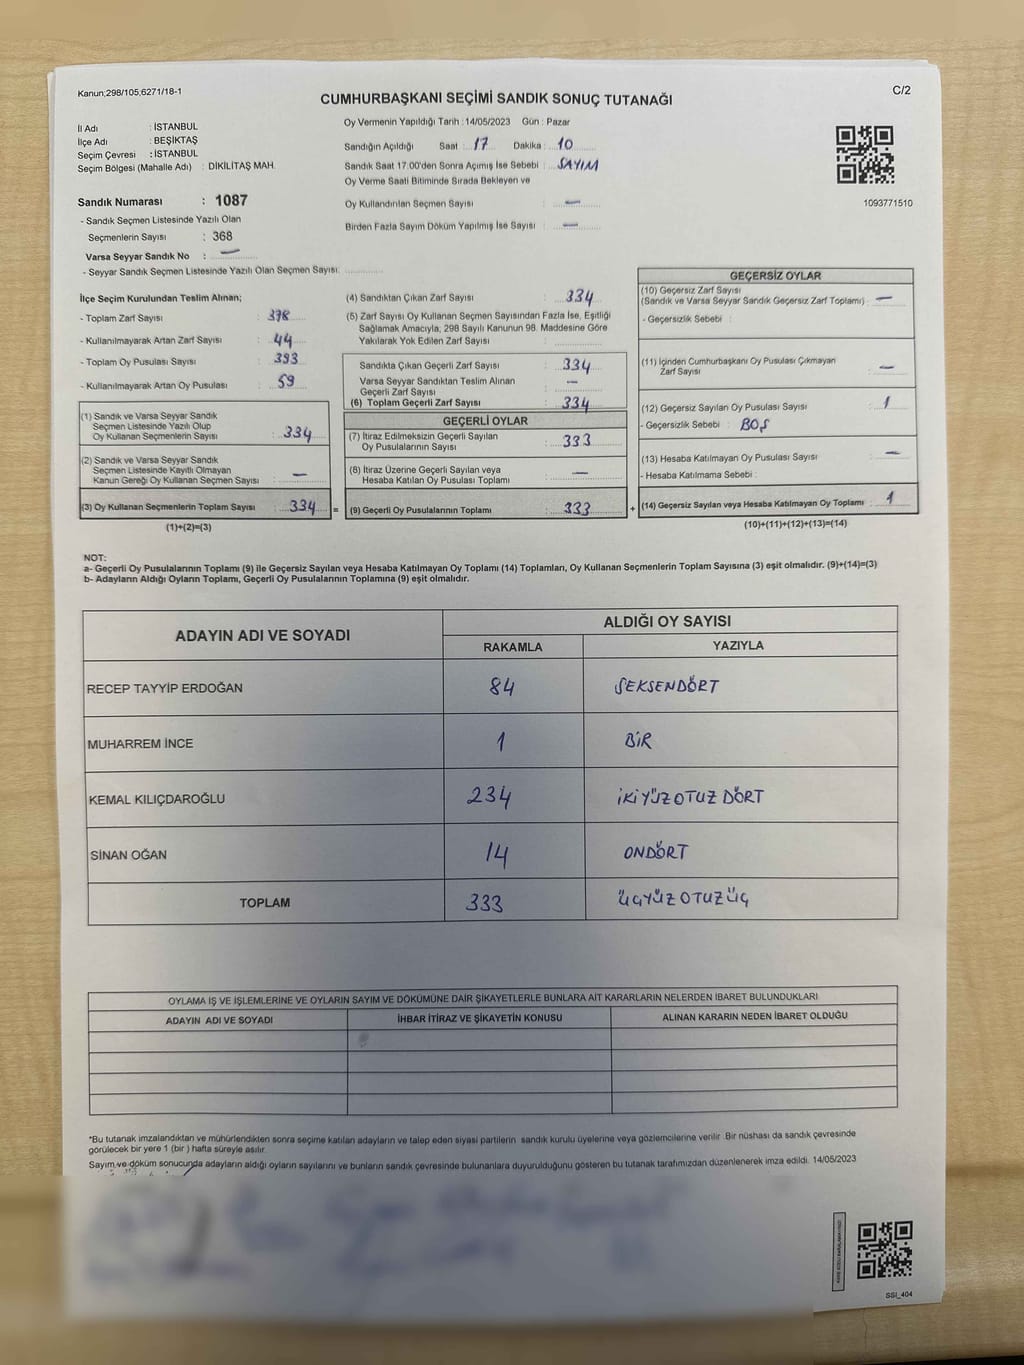 Kanun;298/105,6271/18-1
C/2
CUMHURBAŞKANI SEÇİMİ SANDIK SONUÇ TUTANAĞI
İl Adı : İSTANBUL
İlçe Adı : BEŞİKTAŞ
Seçim Çevresi : İSTANBUL
Seçim Bölgesi (Mahalle Adı) : DİKİLİTAŞ MAH.
Oy Vermenin Yapıldığı Tarih : 14/05/2023 Gün : Pazar
Sandığın Açıldığı Saat : 17 Dakika : 10
Sandık Saat 17:00'den Sonra Açımış İse Sebebi : SAYIM
Oy Verme Saati Bitiminde Sırada Bekleyen ve
Oy Kullandırılan Seçmen Sayısı : —
Birden Fazla Sayım Döküm Yapılmış İse Sayısı : —
1093771510
Sandık Numarası : 1087
- Sandık Seçmen Listesinde Yazılı Olan
Seçmenlerin Sayısı : 368
Varsa Seyyar Sandık No : —
- Seyyar Sandık Seçmen Listesinde Yazılı Olan Seçmen Sayısı:
İlçe Seçim Kurulundan Teslim Alınan;
- Toplam Zarf Sayısı : 378
- Kullanılmayarak Artan Zarf Sayısı : 44
- Toplam Oy Pusulası Sayısı : 393
- Kullanılmayarak Artan Oy Pusulası : 59
(1) Sandık ve Varsa Seyyar Sandık
Seçmen Listesinde Yazılı Olup
Oy Kullanan Seçmenlerin Sayısı : 334
(2) Sandık ve Varsa Seyyar Sandık
Seçmen Listesinde Kayıtlı Olmayan
Kanun Gereği Oy Kullanan Seçmen Sayısı : —
(3) Oy Kullanan Seçmenlerin Toplam Sayısı : 334 =
(1)+(2)=(3)
(4) Sandıktan Çıkan Zarf Sayısı : 334
(5) Zarf Sayısı Oy Kullanan Seçmen Sayısından Fazla İse, Eşitliği
Sağlamak Amacıyla, 298 Sayılı Kanunun 98. Maddesine Göre
Yakılarak Yok Edilen Zarf Sayısı :
Sandıkta Çıkan Geçerli Zarf Sayısı : 334
Varsa Seyyar Sandıktan Teslim Alınan
Geçerli Zarf Sayısı : —
(6) Toplam Geçerli Zarf Sayısı : 334
GEÇERLİ OYLAR
(7) İtiraz Edilmeksizin Geçerli Sayılan
Oy Pusulalarının Sayısı : 333
(8) İtiraz Üzerine Geçerli Sayılan veya
Hesaba Katılan Oy Pusulası Toplamı : —
(9) Geçerli Oy Pusulalarının Toplamı : 333 +
GEÇERSİZ OYLAR
(10) Geçersiz Zarf Sayısı
(Sandık ve Varsa Seyyar Sandık Geçersiz Zarf Toplamı) : —
- Geçersizlik Sebebi :
(11) İçinden Cumhurbaşkanı Oy Pusulası Çıkmayan
Zarf Sayısı : —
(12) Geçersiz Sayılan Oy Pusulası Sayısı : 1
- Geçersizlik Sebebi : BOŞ
(13) Hesaba Katılmayan Oy Pusulası Sayısı : —
- Hesaba Katılmama Sebebi :
(14) Geçersiz Sayılan veya Hesaba Katılmayan Oy Toplamı : 1
(10)+(11)+(12)+(13)=(14)
NOT:
a- Geçerli Oy Pusulalarının Toplamı (9) ile Geçersiz Sayılan veya Hesaba Katılmayan Oy Toplamı (14) Toplamları, Oy Kullanan Seçmenlerin Toplam Sayısına (3) eşit olmalıdır. (9)+(14)=(3)
b- Adayların Aldığı Oyların Toplamı, Geçerli Oy Pusulalarının Toplamına (9) eşit olmalıdır.
ADAYIN ADI VE SOYADI
ALDIĞI OY SAYISI
RAKAMLA YAZIYLA
RECEP TAYYİP ERDOĞAN 84 SEKSENDÖRT
MUHARREM İNCE 1 BİR
KEMAL KILIÇDAROĞLU 234 İKİYÜZOTUZ DÖRT
SİNAN OĞAN 14 ONDÖRT
TOPLAM 333 ÜÇYÜZ OTUZ ÜÇ
OYLAMA İŞ VE İŞLEMLERİNE VE OYLARIN SAYIM VE DÖKÜMÜNE DAİR ŞİKAYETLERLE BUNLARA AİT KARARLARIN NELERDEN İBARET BULUNDUKLARI
ADAYIN ADI VE SOYADI İHBAR İTİRAZ VE ŞİKAYETİN KONUSU ALINAN KARARIN NEDEN İBARET OLDUĞU
*Bu tutanak imzalandıktan ve mühürlendikten sonra seçime katılan adayların ve talep eden siyasi partilerin sandık kurulu üyelerine veya gözlemcilerine verilir. Bir nüshası da sandık çevresinde
görülecek bir yere 1 (bir ) hafta süreyle asılır.
Sayım ve döküm sonucunda adayların aldığı oyların sayılarını ve bunların sandık çevresinde bulunanlara duyurulduğunu gösteren bu tutanak tarafımızdan düzenlenerek imza edildi. 14/05/2023
SSI_404